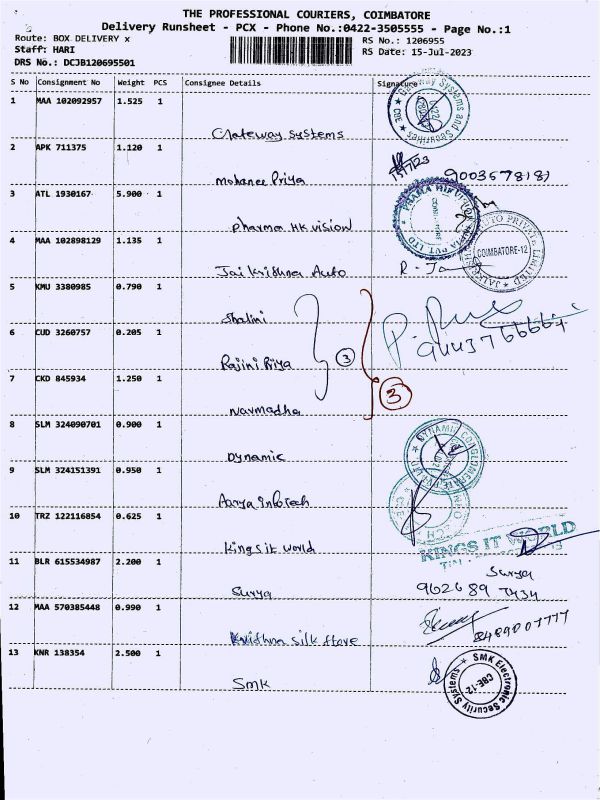 THE PROFESSIONAL COURIERS, COIMBATORE
Delivery Runsheet - PCX - Phone No.:0422-3505555 - Page No.:1
Route: BOX DELIVERY x
RS No.: 1206955
Staff: HARI
RS Date: 15-Jul-2023
DRS No.: DCJB120695501
S No Consignment No Weight PCS Consignee Details Signature
1 MAA 102092957 1.525 1
Gateway Systems
2 APK 711375 1.120 1
Mohanee Priya 9003578187
3 ATL 1930167 5.900 1
Pharma HK vision
4 MAA 102898129 1.135 1
Jai Krishna Auto
COIMBATORE-12
5 KMU 3380985 0.790 1
Shalini
6 CUD 3260757 0.205 1
Rajini Priya 3
7 CKD 845934 1.250 1
3
Narmadha
8 SLM 324090701 0.900 1
Dynamic
9 SLM 324151391 0.950 1
Aarya Infotech
10 TRZ 122116854 0.625 1
Kings it world
KINGS IT WORLD
11 BLR 615534987 2.200 1
Surya
Surya
962689 7434
12 MAA 570385448 0.990 1
Krishna silk store
8489007777
13 KNR 138354 2.500 1
SMK
SMK Electronic Security Systems
CBE-12